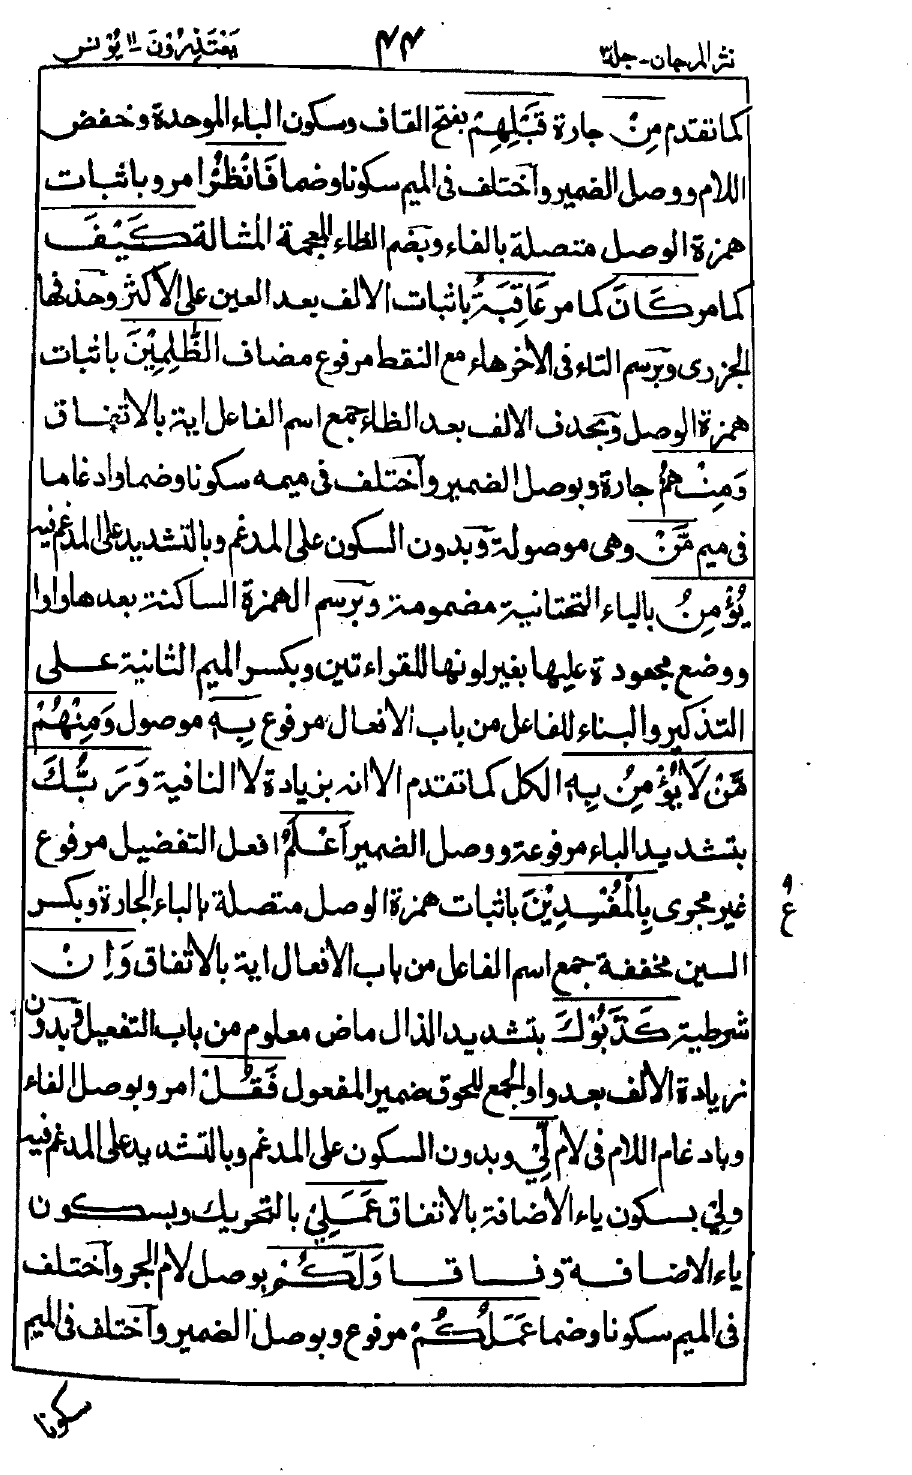 نثر المرجان - جلد ٣
٤٤
يعتذرون ١١ يونس
كما تقدم مِنْ جارة قَبْلِهِمْ بفتح القاف وسكون الباء الموحدة وخفض
اللام ووصل الضمير وآختلف فى الميم سكونا وضما فَانْظُرْ امر وباثبات
همزة الوصل متصلة بالفاء وبضم الظاء المعجمة المشالة كَيْفَ
كما مر كَانَ كما مر عَاقِبَةُ باثبات الالف بعد العين على الأكثر وحذفها
الجزرى وبرسم التاء فى الآخر هاء مع النقط مرفوع مضاف الظّٰلِمِيْنَ باثبات
همزة الوصل وبحذف الالف بعد الظاء جمع اسم الفاعل اية بالاتفاق
وَمِنْهُمْ جارة وبوصل الضمير وآختلف فى ميمه سكونا وضما وادغاما
فى ميم مَّنْ وهى موصولة وبدون السكون على المدغم وبالتشديد على المدغم فيه
يُؤْمِنُ بالياء التحتانية مضمومة وبرسم الهمزة الساكنة بعدها واوا
ووضع مجعودة عليها بغير لونها للقراءتين وبكسر الميم الثانية على
التذكير والبناء للفاعل من باب الأفعال مرفوع بِهٖ موصول وَمِنْهُمْ
مَّنْ لَا يُؤْمِنُ بِهٖ الكل كما تقدم الا انه بزيادة لا النافية وَرَبُّكَ
بتشديد الباء مرفوعة ووصل الضمير اَعْلَمُ افعل التفضيل مرفوع
غير مجرى بِالْمُفْسِدِيْنَ باثبات همزة الوصل متصلة بالباء الجارة وبكسر
السين مخففة جمع اسم الفاعل من باب الأفعال اية بالاتفاق وَاِنْ
شرطية كَذَّبُوْكَ بتشديد الذال ماض معلوم من باب التفعيل وبدون
زيادة الألف بعد واو الجمع للحوق ضمير المفعول فَقُلْ امر وبوصل الفاء
وبادغام اللام فى لام لِّيْ وبدون السكون على المدغم وبالتشديد على المدغم فيه
ولِيْ بسكون ياء الاضافة بالاتفاق عَمَلِيْ بالتحريك وبسكون
ياء الاضافة وفاقا وَلَكُمْ بوصل لام الجر وآختلف
فى الميم سكونا وضما عَمَلُكُمْ مرفوع وبوصل الضمير وآختلف فى الميم
٩
ع
سكونا